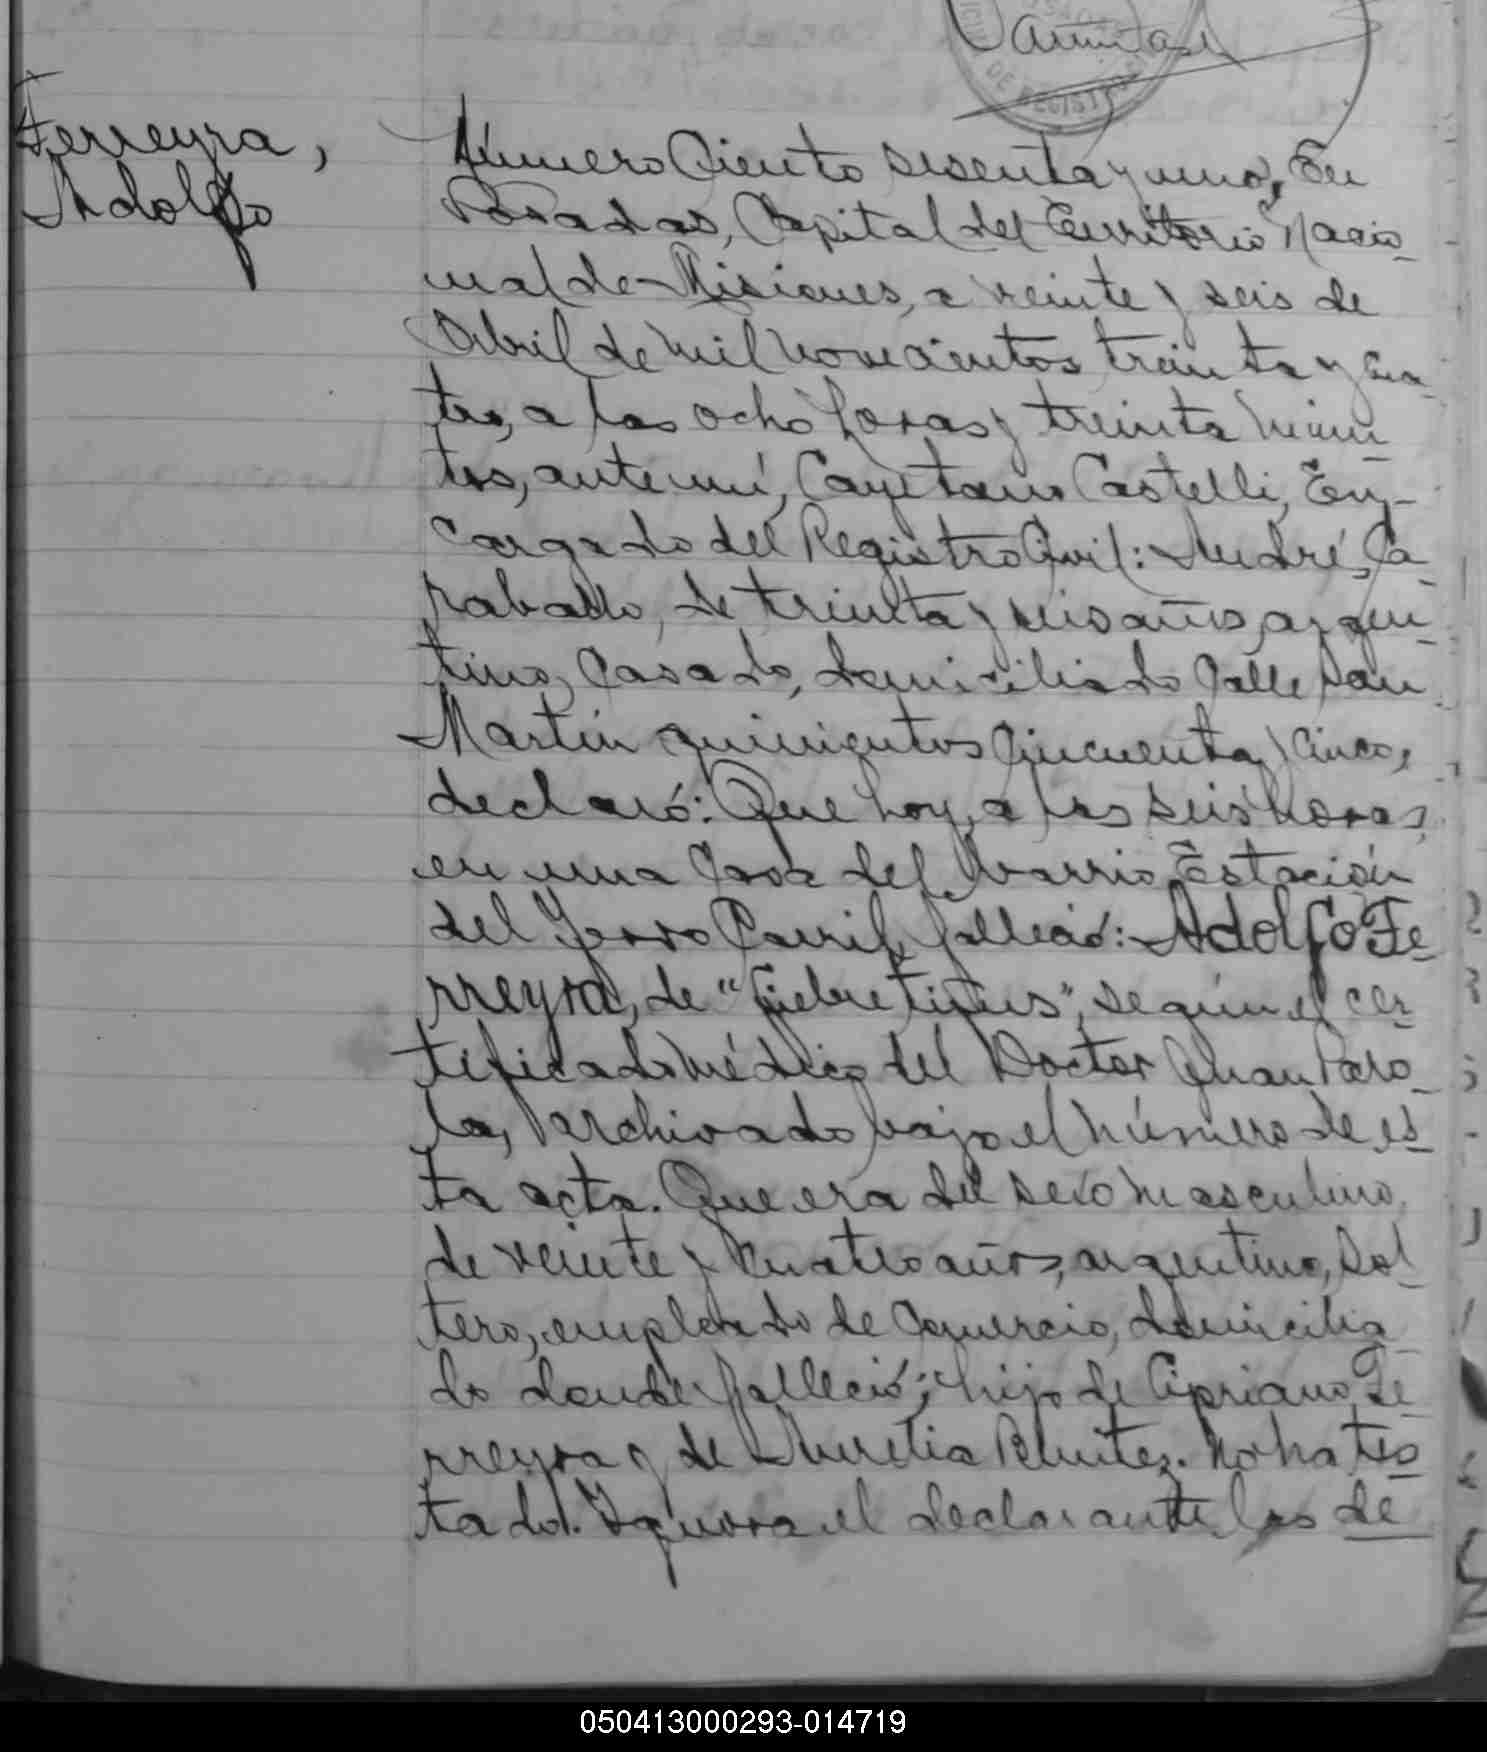 DE REGISTRO
Ferreyra,
Adolfo
Número Ciento sesenta y uno, En
Posadas, Capital del Territorio Nacio-
nal de Misiones, a veinte y seis de
Abril de mil novecientos treinta y cua-
tro, a las ocho horas y treinta minu-
tos, ante mí, Cayetano Castelli, En-
cargado del Registro Civil: André, Ca-
raballo, de treinta y seis años, argen-
tino, Casado, domiciliado Calle San
Martín quinientos cincuenta y cinco,
declaró: Que hoy, a las seis horas,
en una Casa del barrio Estación
del Ferro Carril, falleció: Adolfo Fe-
rreyra, de "fiebre tifus", según el cer-
tificado médico del Doctor Juan Paro-
la, archivado bajo el número de es-
ta acta. Que era del sexo masculino,
de veinte y cuatro años, argentino, sol-
tero, empleado de Comercio, domicilia-
do donde falleció; hijo de Cipriano Fe-
rreyra y de Aurelia Benitez. No ha tes-
tado. Ignora el declarante los de
050413000293-014719